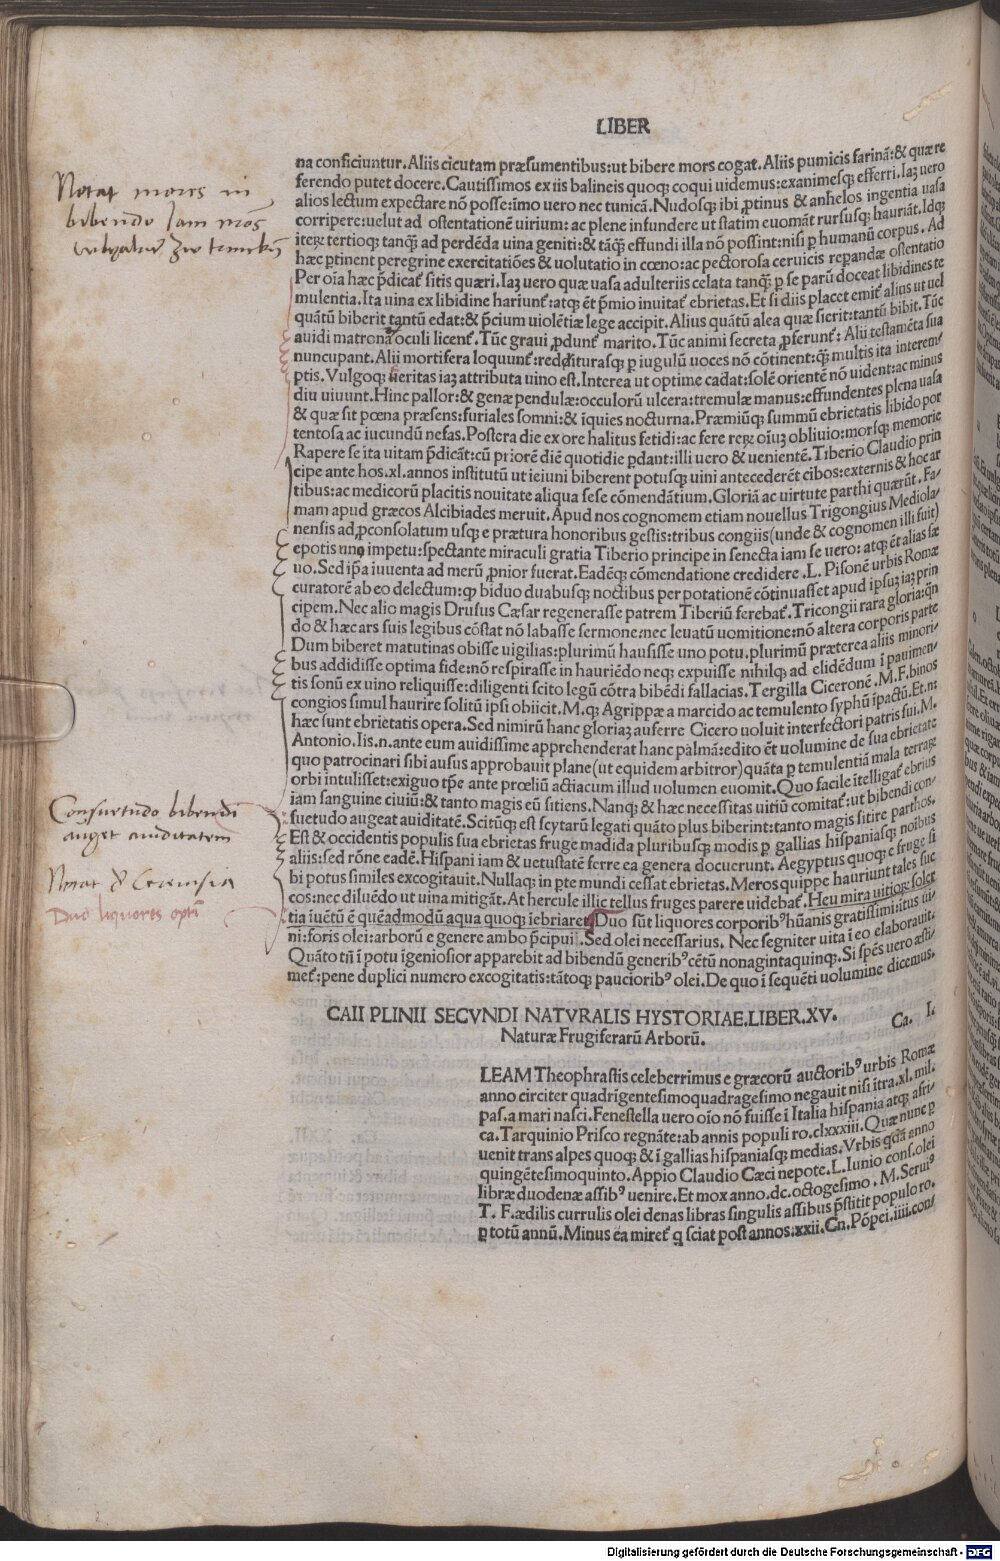 LIBER
na conficiuntur. Aliis cicutam præsumentibus: ut bibere mors cogat. Aliis pumicis farinā: & quæ re
ferendo putet docere. Cautissimos ex iis balineis quoqꝫ coqui uidemus: exanimesqꝫ efferri. Iaꝫ uero
alios lectum expectare nō posse: īmo uero nec tunicā. Nudosqꝫ ibi ꝓtinus & anhelos ingentia uasa
corripere: uelut ad ostentationē uirium: ac plene infundere ut statim euomāt rursusqꝫ hauriāt. Idqꝫ
iteꝝ tertioqꝫ: tanqꝫ ad perdēda uina geniti: & tāqꝫ effundi illa nō possint: nisi ꝑ humanū corpus. Ad
hæc ꝑtinent peregrine exercitatiōes & uolutatio in cœno: ac pectorosa ceruicis repandæ ostentatio
Per oīa hæc p̄dicat᷑ sitis quæri. Iaꝫ uero quæ uasa adulteriis celata tanqꝫ ꝑ se parū doceat libidines te
mulentia. Ita uina ex libidine hariunt᷑: atqꝫ ēt p̄mio inuitat᷑ ebrietas. Et si diis placet emit᷑ alius ut uel
quātū biberit tantū edat: & p̄cium uiolētiæ lege accipit. Alius quātū alea quæ sierit: tantū bibit. Tūc
auidi matronā oculi licent᷑. Tūc graui ꝓdunt᷑ marito. Tūc animi secreta ꝓferunt᷑: Alii testamēta sua
nuncupant. Alii mortifera loquunt᷑: redditurasqꝫ ꝑ iugulū uoces nō cōtinent: qꝫ multis ita interem/
ptis. Vulgoqꝫ ueritas iaꝫ attributa uino est. Interea ut optime cadat: solē orientē nō uident: ac minus
diu uiuunt. Hinc pallor: & genæ pendulæ: occulorū ulcera: tremulæ manus: effundentes plena uasa
& quæ sit pœna præsens: furiales somni: & īquies nocturna. Præmiūqꝫ summū ebrietatis libido por
tentosa ac iucundū nefas. Postera die ex ore halitus fetidi: ac fere reꝝ oīuꝫ obliuio: morsqꝫ memorie
Rapere se ita uitam p̄dicāt: cū priorē diē quotidie ꝑdant: illi uero & uenientē. Tiberio Claudio prin
cipe ante hos. xl. annos institutū ut ieiuni biberent potusqꝫ uini antecederēt cibos: externis & hoc ar
tibus: ac medicorū placitis nouitate aliqua sese cōmendātium. Gloriā ac uirtute parthi quærūt. Fa/
mam apud græcos Alcibiades meruit. Apud nos cognomen etiam nouellus Trigongius Mediola/
nensis ad ꝓconsolatum usqꝫ e prætura honoribus gestis: tribus congiis (unde & cognomen illi fuit)
epotis uno impetu: spectante miraculi gratia Tiberio principe in senecta iam se uero: atqꝫ ēt alias sæ
uo. Sed ip̄a iuuenta ad merū ꝓnior fuerat. Eadēqꝫ cōmendatione credidere. L. Pisonē urbis Romæ
curatorē ab eo delectum: qꝑ biduo duabusqꝫ noctibus per potationē cōtinuasset apud ipsuꝫ iaꝫ prin
cipem. Nec alio magis Drusus Cæsar regenerasse patrem Tiberiū ferebat᷑. Tricongii rara gloria: qn̄
do & hæc ars suis legibus cōstat nō labasse sermone: nec leuatū uomitione: nō altera corporis parte
Dum biberet matutinas obisse uigilias: plurimū hausisse uno potu. plurimū præterea aliis minori/
bus addidisse optima fide: nō respirasse in hauriēdo neqꝫ expuisse nihilqꝫ ad elidēdum ī pauimen/
tis sonū ex uino reliquisse: diligenti scito legū cōtra bibēdi fallacias. Tergilla Ciceronē. M. F. binos
congios simul haurire solitū ipsi obiicit. M. qꝫ Agrippæ a marcido ac temulento syphū īpactū. Et. nt
hæc sunt ebrietatis opera. Sed nimirū hanc gloriaꝫ auferre Cicero uoluit interfectori patris sui. M.
Antonio. Iis. n. ante eum auidissime apprehenderat hanc palmā: edito ēt uolumine de sua ebrietate
quo patrocinari sibi ausus approbauit plane (ut equidem arbitror) quāta ꝑ temulentiā mala terraꝝ
orbi intulisset: exiguo tp̄e ante prœliū actiacum illud uolumen euomit. Quo facile ītelligat᷑ ebrius
iam sanguine ciuiū: & tanto magis eū sitiens. Nanqꝫ & hæc necessitas uitiū comitat᷑: ut bibendi con/
suetudo augeat auiditatē. Scitūqꝫ est scytarū legati quāto plus biberint: tanto magis sitire parthos.
Est & occidentis populis sua ebrietas fruge madida pluribusqꝫ modis ꝑ gallias hispaniasqꝫ noībus
aliis: sed rōne eadē. Hispani iam & uetustatē ferre ea genera docuerunt. Aegyptus quoqꝫ e fruge si
bi potus similes excogitauit. Nullaqꝫ in ꝑte mundi cessat ebrietas. Meros quippe hauriunt tales suc
cos: nec diluēdo ut uina mitigāt. At hercule illic tellus fruges parere uidebat᷑. Heu mira uitioꝝ solet
tia īuētū ē quēadmodū aqua quoqꝫ īebriaret. Duo sūt liquores corporibꝰ hūanis gratissimi: ītus ui/
ni: foris olei: arborū e genere ambo p̄cipui. Sed olei necessarius. Nec segniter uita ī eo elaborauit.
Quāto tn̄ ī potu īgeniosior apparebit ad bibendū generibꝰ cētū nonagintaquinqꝫ. Si spēs uero æsti/
met᷑: pene duplici numero excogitatis: tātoqꝫ paucioribꝰ olei. De quo ī sequēti uolumine dicemus.
CAII PLINII SECVNDI NATVRALIS HYSTORIAE. LIBER. XV.
Naturæ Frugiferarū Arborū. Ca. I.
LEAM Theophrastis celeberrimus e græcorū auctoribꝰ urbis Romæ
anno circiter quadrigentesimoquadragesimo negauit nisi ītra. xl. mil.
pas. a mari nasci. Fenestella uero oīo nō fuisse ī Italia hispania atqꝫ afri/
ca. Tarquinio Prisco regnāte: ab annis populi ro. clxxxiii. Quæ nunc ꝑ
uenit trans alpes quoqꝫ & ī gallias hispaniasqꝫ medias. Vrbis qdā anno
quingētesimoquinto. Appio Claudio Cæci nepote. L. Iunio cons. olei
libræ duodenæ assibꝰ uenire. Et mox anno. dc. octogesimo. M. Seruiꝰ
T. F. ædilis currulis olei denas libras singulis assibus p̄stitit populo ro.
ꝑ totū annū. Minus ea miret᷑ q sciat post annos: xxii. Cn. Pōpei. iiii. con/
Notat mores in
bibendo Iam mōs
Consuetudo bibendi
auget auiditatem
Notat
Duo liquores opti
Digitalisierung gefördert durch die Deutsche Forschungsgemeinschaft - DFG